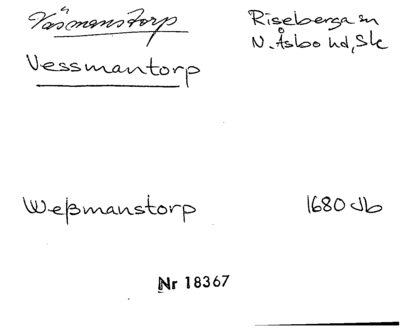 Väsmanstorp
Riseberga sn
Vessmantorp
N. Åsbo hd, Sk
Weßmanstorp
1680 Jb
Nr 18367